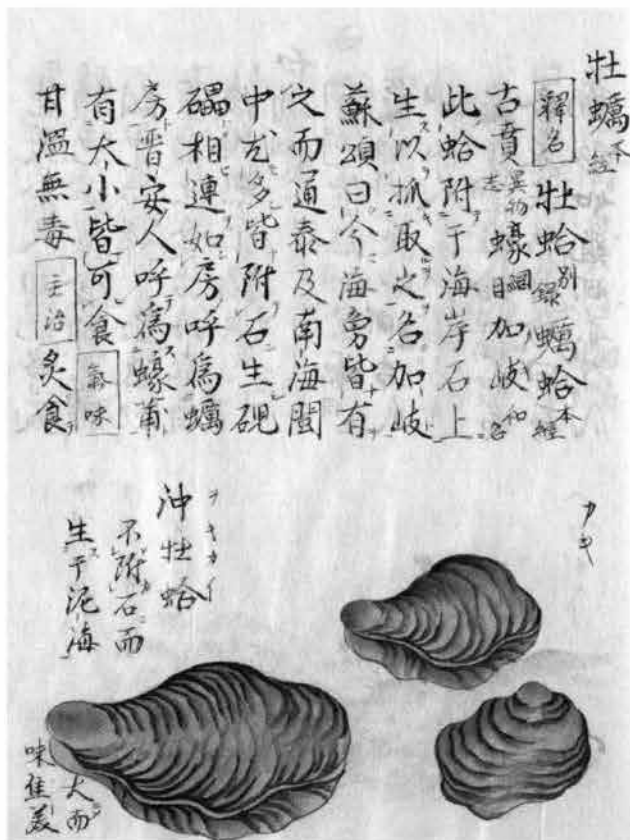 牡蠣本經
釋名 牡蛤別録蠣蛤本經
古賁異物志蠔綱目加岐和名
此蛤附于海岸石上ニ
生ス以抓取之名加岐
蘇頌曰今海旁皆有
之而通泰及南海閩
中尤多皆附石生磈
礧相連如房呼爲蠣
房晋安人呼爲蠔莆
有大小皆可食 氣味
甘溫無毒 主治 炙食
カキ
ヲキカイ
沖牡蛤
不附石而
生于泥海
大而
味佳美